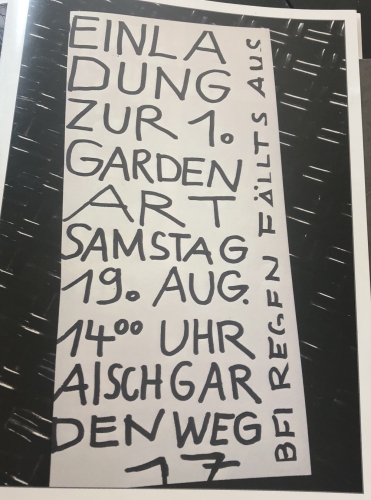 EINLA
DUNG
ZUR 1.
GARDEN
ART
SAMSTAG
19. AUG.
14⁰⁰ UHR
AISCHGAR
DENWEG
17
BEI REGEN FÄLLTS AUS